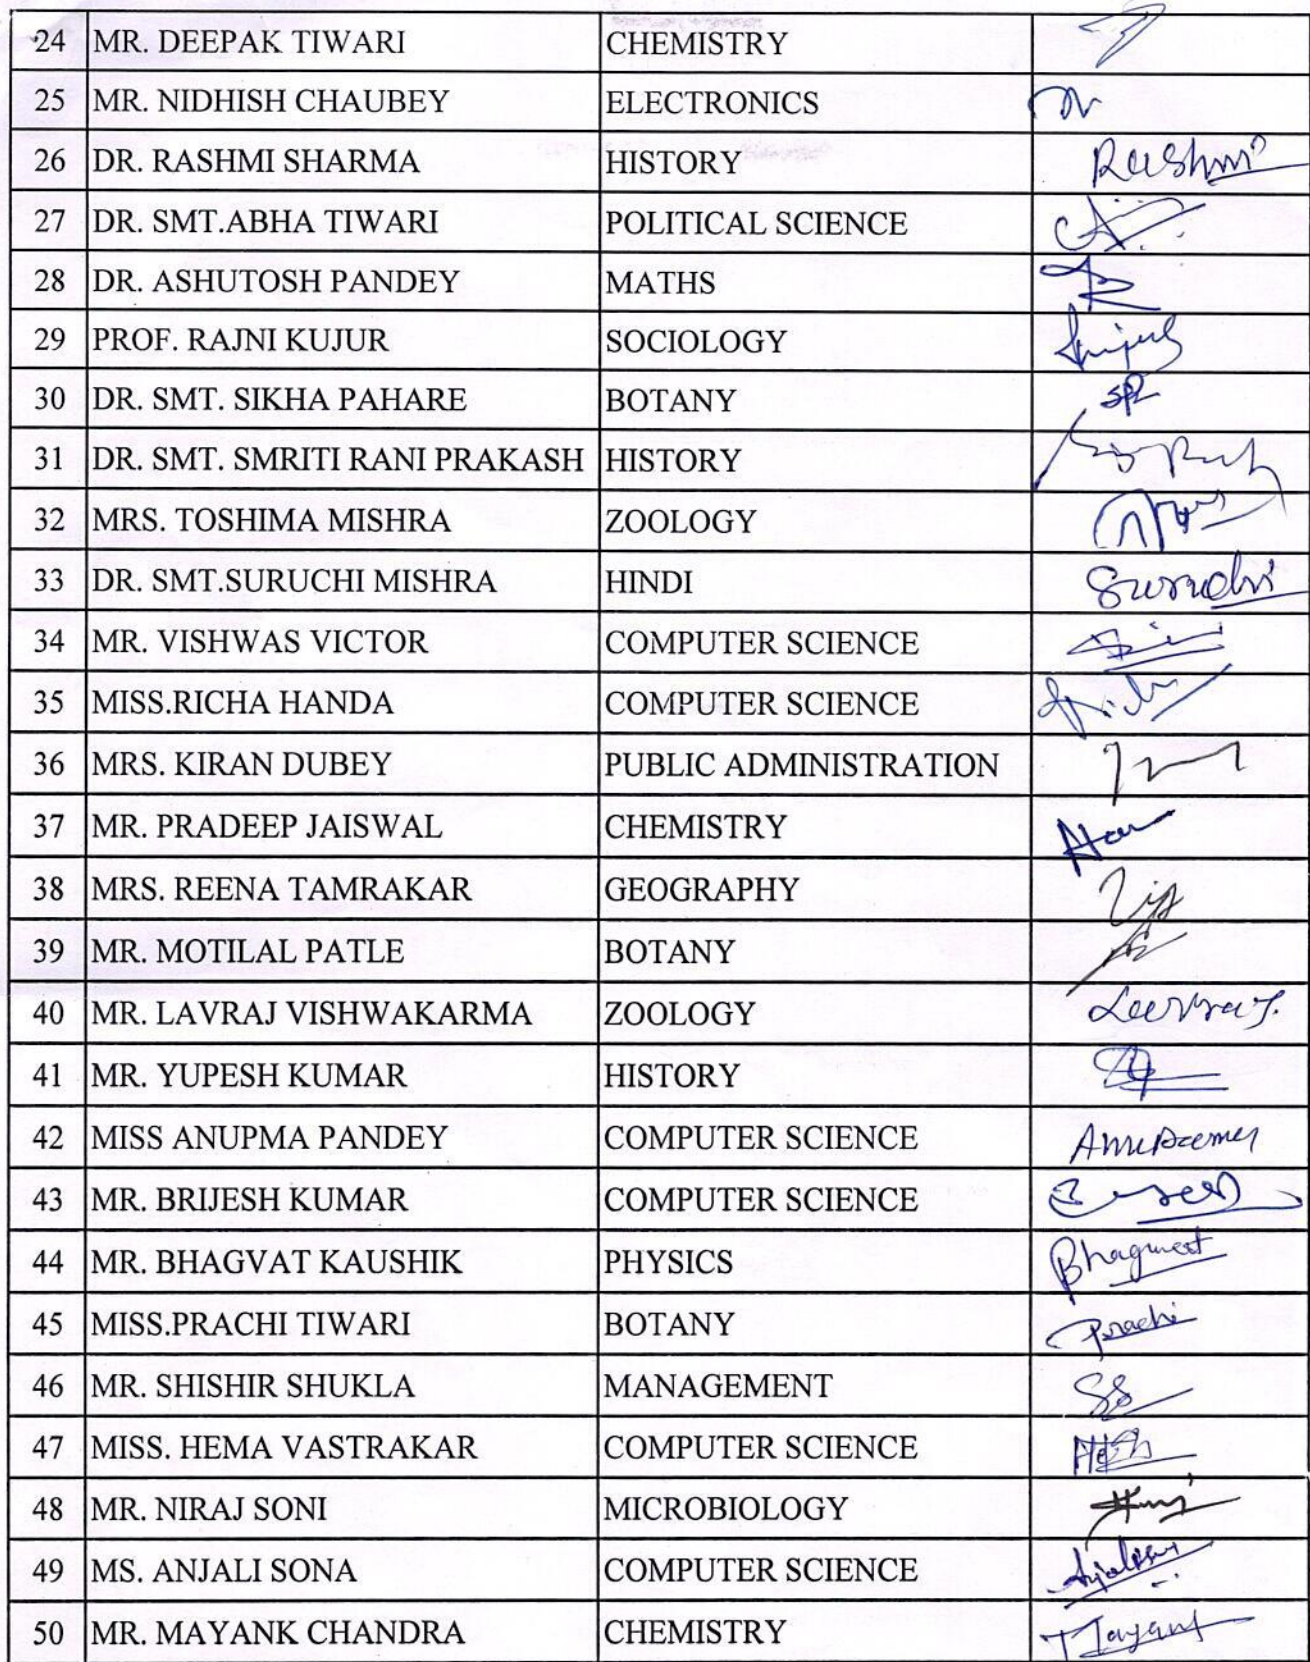 24 MR. DEEPAK TIWARI CHEMISTRY
25 MR. NIDHISH CHAUBEY ELECTRONICS
26 DR. RASHMI SHARMA HISTORY Rashmi
27 DR. SMT.ABHA TIWARI POLITICAL SCIENCE
28 DR. ASHUTOSH PANDEY MATHS
29 PROF. RAJNI KUJUR SOCIOLOGY
30 DR. SMT. SIKHA PAHARE BOTANY
31 DR. SMT. SMRITI RANI PRAKASH HISTORY
32 MRS. TOSHIMA MISHRA ZOOLOGY
33 DR. SMT.SURUCHI MISHRA HINDI Suruchi
34 MR. VISHWAS VICTOR COMPUTER SCIENCE
35 MISS.RICHA HANDA COMPUTER SCIENCE
36 MRS. KIRAN DUBEY PUBLIC ADMINISTRATION
37 MR. PRADEEP JAISWAL CHEMISTRY
38 MRS. REENA TAMRAKAR GEOGRAPHY
39 MR. MOTILAL PATLE BOTANY
40 MR. LAVRAJ VISHWAKARMA ZOOLOGY
41 MR. YUPESH KUMAR HISTORY
42 MISS ANUPMA PANDEY COMPUTER SCIENCE
43 MR. BRIJESH KUMAR COMPUTER SCIENCE
44 MR. BHAGVAT KAUSHIK PHYSICS Bhagwat
45 MISS.PRACHI TIWARI BOTANY Prachi
46 MR. SHISHIR SHUKLA MANAGEMENT
47 MISS. HEMA VASTRAKAR COMPUTER SCIENCE
48 MR. NIRAJ SONI MICROBIOLOGY
49 MS. ANJALI SONA COMPUTER SCIENCE
50 MR. MAYANK CHANDRA CHEMISTRY